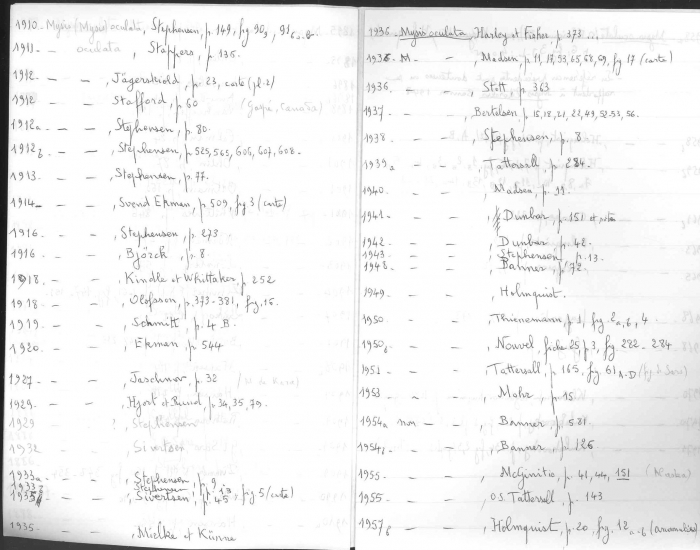 1910 - Mysis (Mysis) oculata, Stephensen, p. 149, fig 90g, 91c-
1911 - oculata, Stappers, p. 136.
1912 - - - , Jägerskiold p. 23, carte (pl. 2)
1912 - - Stafford, p. 60 (Gaspé, Canada)
1912a - - , Stephensen, p. 80.
1912b - - , Stephensen, p. 525, 565, 606, 607, 608.
1913. - - , Stephensen, p. 77.
1914 - - - , Svend Ekman, p 509, fig 3 (carte)
1916 - - , Stephensen, p. 273
1916 - - , Björck, p. 8.
1918. - - , Kindle et Whittaker p. 252
1918. - - , Olofsson, p. 373-381, fig. 16.
1919. - - , Schmitt p. 4 B.
1920. - - , Ekman p. 544
1927 - - , Jaschnov, p. 32
1929 - - , Hjort et Ruud, p. 34, 35, 79.
1929 - ? Stephensen
1932 Sivertsen
1933a - - , Stephensen, p. 9
1933 - - Stephensen, p. 13
1935 - - , Sivertsen, p. 45, fig 5 (carte)
1935 - - , Mielke et Künne
1936 Mysis oculata Harley et Fisher p. 373
1936 - M - , Madsen, p. 11, 17, 53, 65, 68, 69, fig 17 (carte)
1936, - - , Stott p. 363
1937 - - , Bertelsen, p. 15, 18, 21, 22, 49, 52-53, 56.
1938 - - , Stephensen p. 8
1939a - - , Tattersall p. 284
1940. - - , Madsen, p. 11.
1941 - - , Dunbar p. 151 et
1942 - - , Dunbar p. 42.
1943 - - , Stephensen p. 13.
1948 - - , Banner, p. 72.
1949 - - , Holmquist.
1950 - - , Thienemann p 1, fig 2a, b, 4
1950b - - , Nouvel, fiche 25 p 3, fig 282 - 284
1951 - - , Tattersall p. 165, fig 61 A-D (fig de Sars)
1953 - - , Mohr p. 15
1954a non - - , Banner p 581
1954b - - , Banner, p. 126
1955 - - , McGinitie, p. 41, 44, 151 (Alaska)
1955 - - , O.S. Tattersall p. 143
1957b - - , Holmquist p. 20, fig. 12 a-b (anomalies)